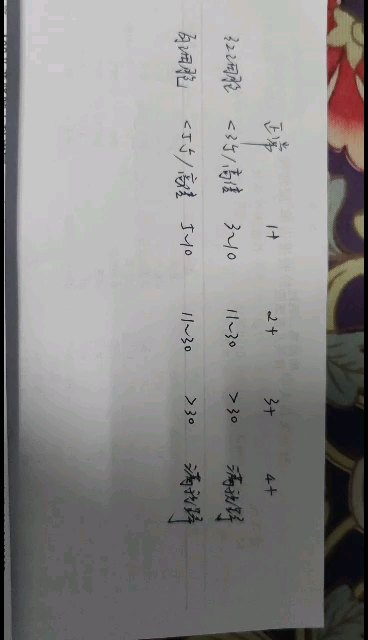 正常 1+ 2+ 3+ 4+
红细胞 <3个/高倍 3~10 11~30 >30 满视野
白细胞 <5个/高倍 5~10 11~30 >30 满视野